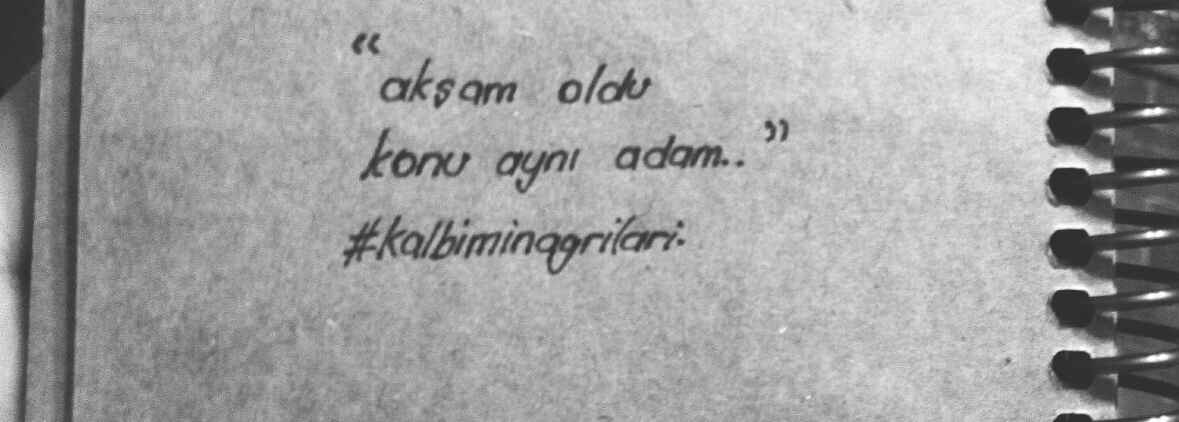 “
akşam oldu
konu aynı adam.. ”
#kalbiminagrilari.